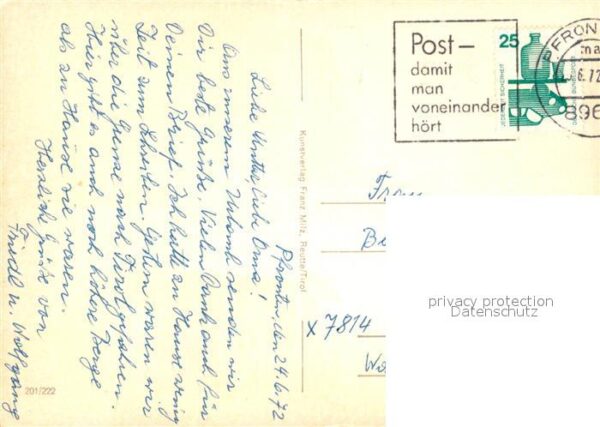 Pfronten, den 24.6.72
Liebe Mutter, liebe Oma!
Aus unserem Urlaub senden wir
Dir beste Grüße. Vielen Dank auch für
Deinen Brief. Ich hatte zu Hause wenig
Zeit zum Schreiben. Gestern waren wir
über die Grenze nach Tirol gefahren.
Hier gibt es auch noch höhere Berge
als zu Hause sie waren.
Herzliche Grüße von
Friedl u. Wolfgang
201/222
Kunstverlag Franz Milz, Reutte/Tirol
Post–
damit
man
voneinander
hört
25
JEDERZEIT SICHERHEIT
PFRON
6.72
896
Frau
x 7814
privacy protection
Datenschutz